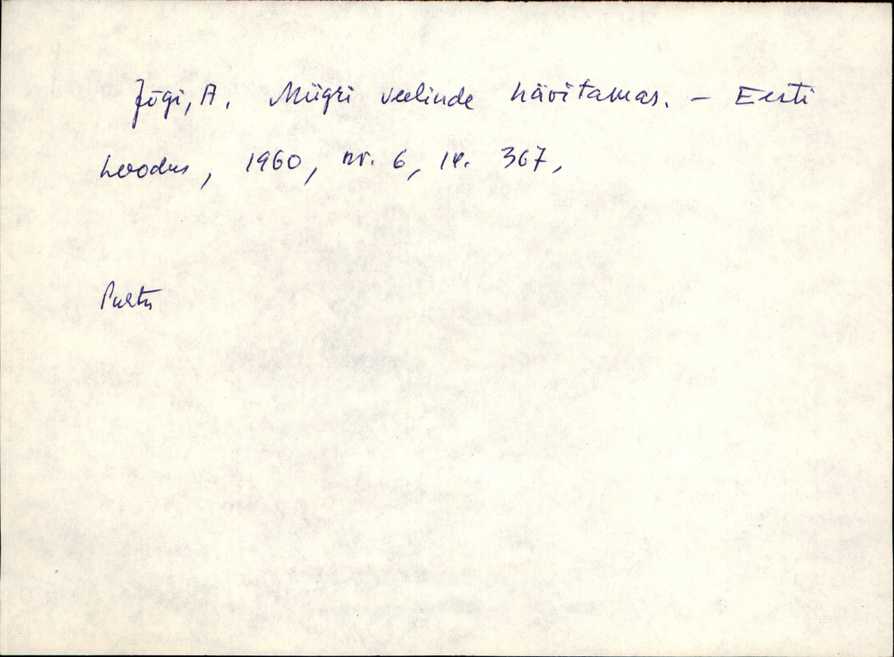 Jõgi, A. Mügri veelinde hävitamas. – Eesti
Loodus, 1960, nr. 6, lk. 367,